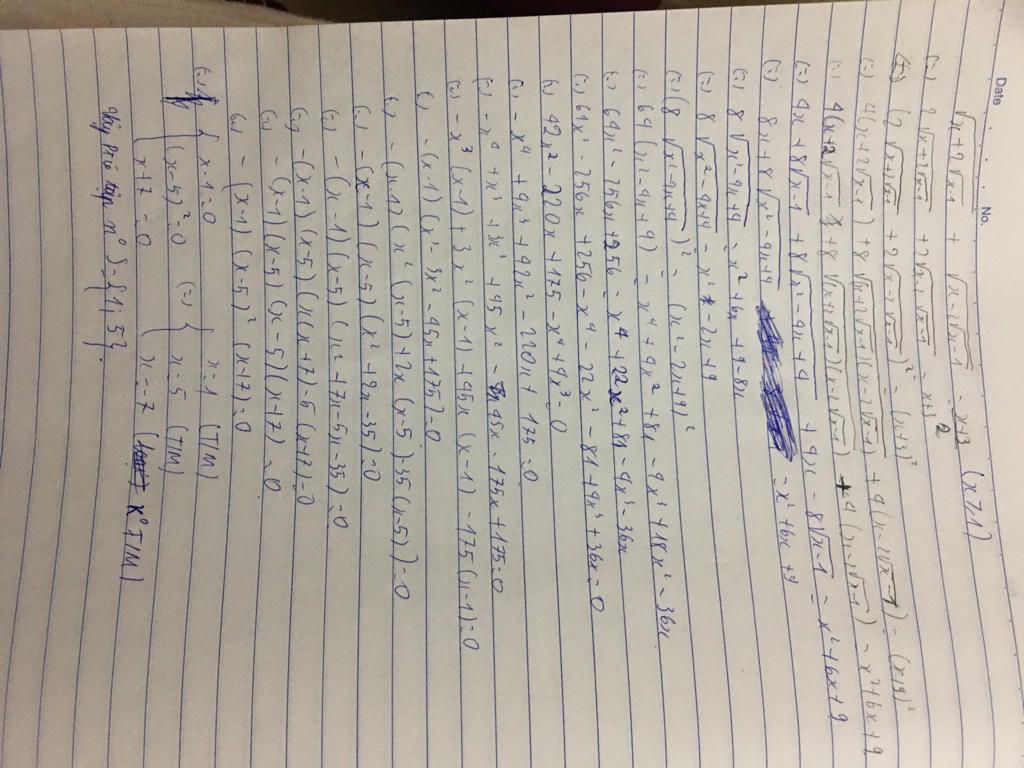 Date
No.
√(x+2√(x-1)) + √(x-2√(x-1)) = (x+3)/2 (x≥1)
(=) 2√(x+2√(x-1)) + 2√(x-2√(x-1)) = x+3
(=) (2√(x+2√(x-1)) + 2√(x-2√(x-1)))² = (x+3)²
(=) 4(x+2√(x-1)) + 8√((x+2√(x-1))(x-2√(x-1))) + 4(x-2√(x-1)) = (x+3)²
(=) 4(x+2√(x-1)) + 8√((x+2√(x-1))(x-2√(x-1))) + 4(x-2√(x-1)) = x²+6x+9
(=) 4x + 8√(x-1) + 8√(x²-4x+4) + 4x - 8√(x-1) = x²+6x+9
(=) 8x + 8√(x²-4x+4) = x²+6x+9
(=) 8√(x²-4x+4) = x²+6x+9-8x
(=) 8√(x²-4x+4) = x²-2x+9
(=) (8√(x²-4x+4))² = (x²-2x+9)²
(=) 64(x²-4x+4) = x⁴+4x²+81-4x³+18x²-36x
(=) 64x²-256x+256 = x⁴+22x²+81-4x³-36x
(=) 64x²-256x+256-x⁴-22x²-81+4x³+36x=0
(=) 42x²-220x+175-x⁴+4x³=0
(=) -x⁴+4x³+42x²-220x+175=0
(=) -x⁴+x³+3x³+45x²-45x-175x+175=0
(=) -x³(x-1)+3x²(x-1)+45x(x-1)-175(x-1)=0
(=) -(x-1)(x³-3x²-45x+175)=0
(=) -(x-1)(x²(x-5)+2x(x-5)-35(x-5))=0
(=) -(x-1)(x-5)(x²+2x-35)=0
(=) -(x-1)(x-5)(x²+7x-5x-35)=0
(=) -(x-1)(x-5)(x(x+7)-5(x+7))=0
(=) -(x-1)(x-5)(x-5)(x+7)=0
(=) -(x-1)(x-5)²(x+7)=0
(=) { x-1=0 x=1 (TM)
(x-5)²=0 (=) { x=5 (TM)
x+7=0 x=-7 (KTM)
Vậy tập n⁰ S={1;5}.